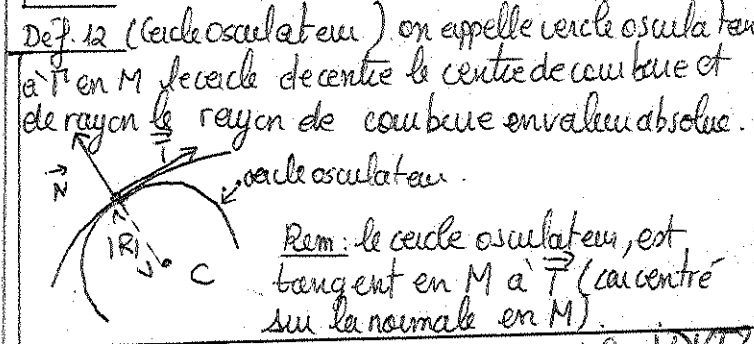 Déf. 12 (Cercle osculateur) on appelle cercle osculateur
à Γ en M le cercle de centre le centre de courbure et
de rayon le rayon de courbure en valeur absolue.
T
N
cercle osculateur.
|R|
C
Rem: le cercle osculateur, est
tangent en M à T (car centré
sur la normale en M).